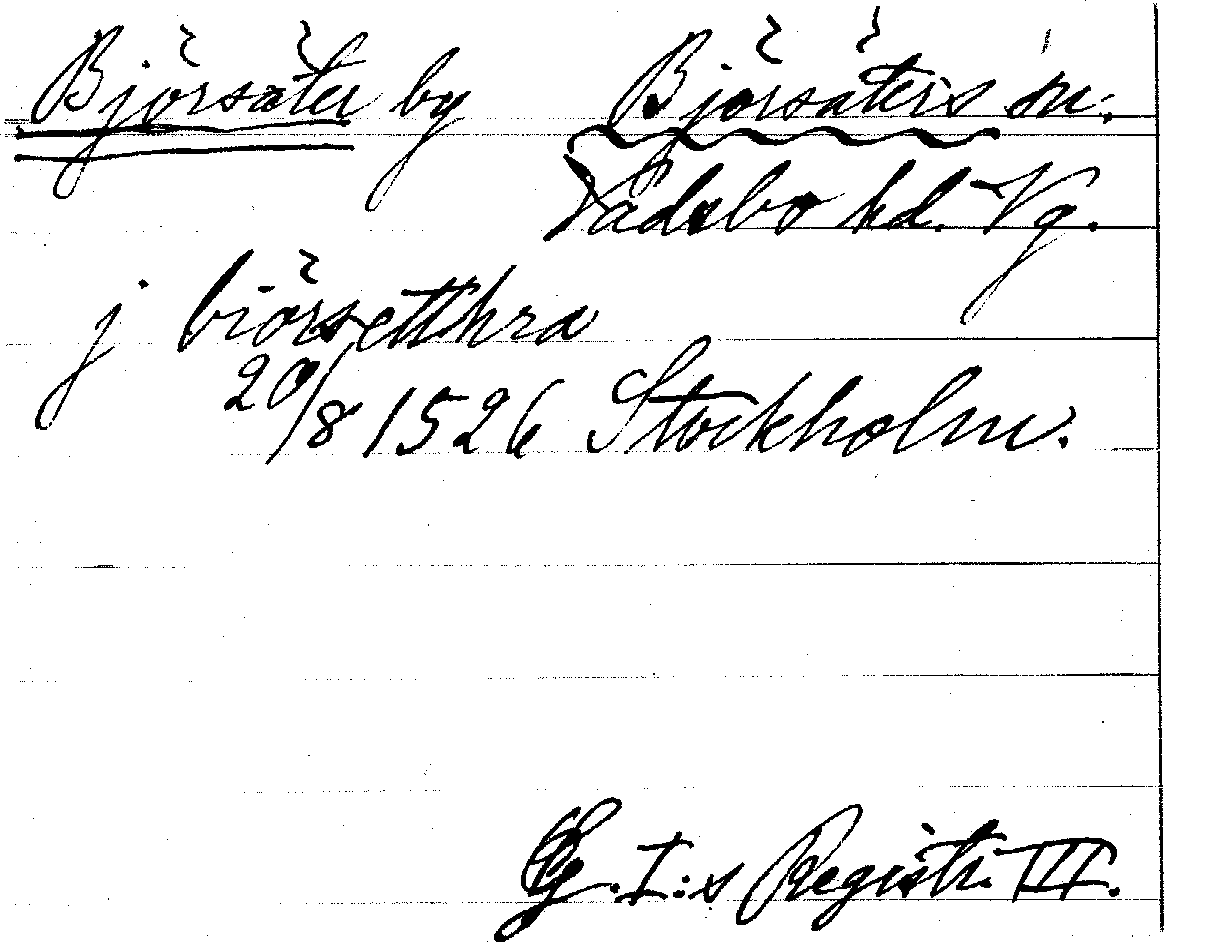 Björsäter by Björsäters sn.
Vadsbo hd. Vg.
j biörsetthra
20/8 1526 Stockholm.
G. I:s Registr. III.